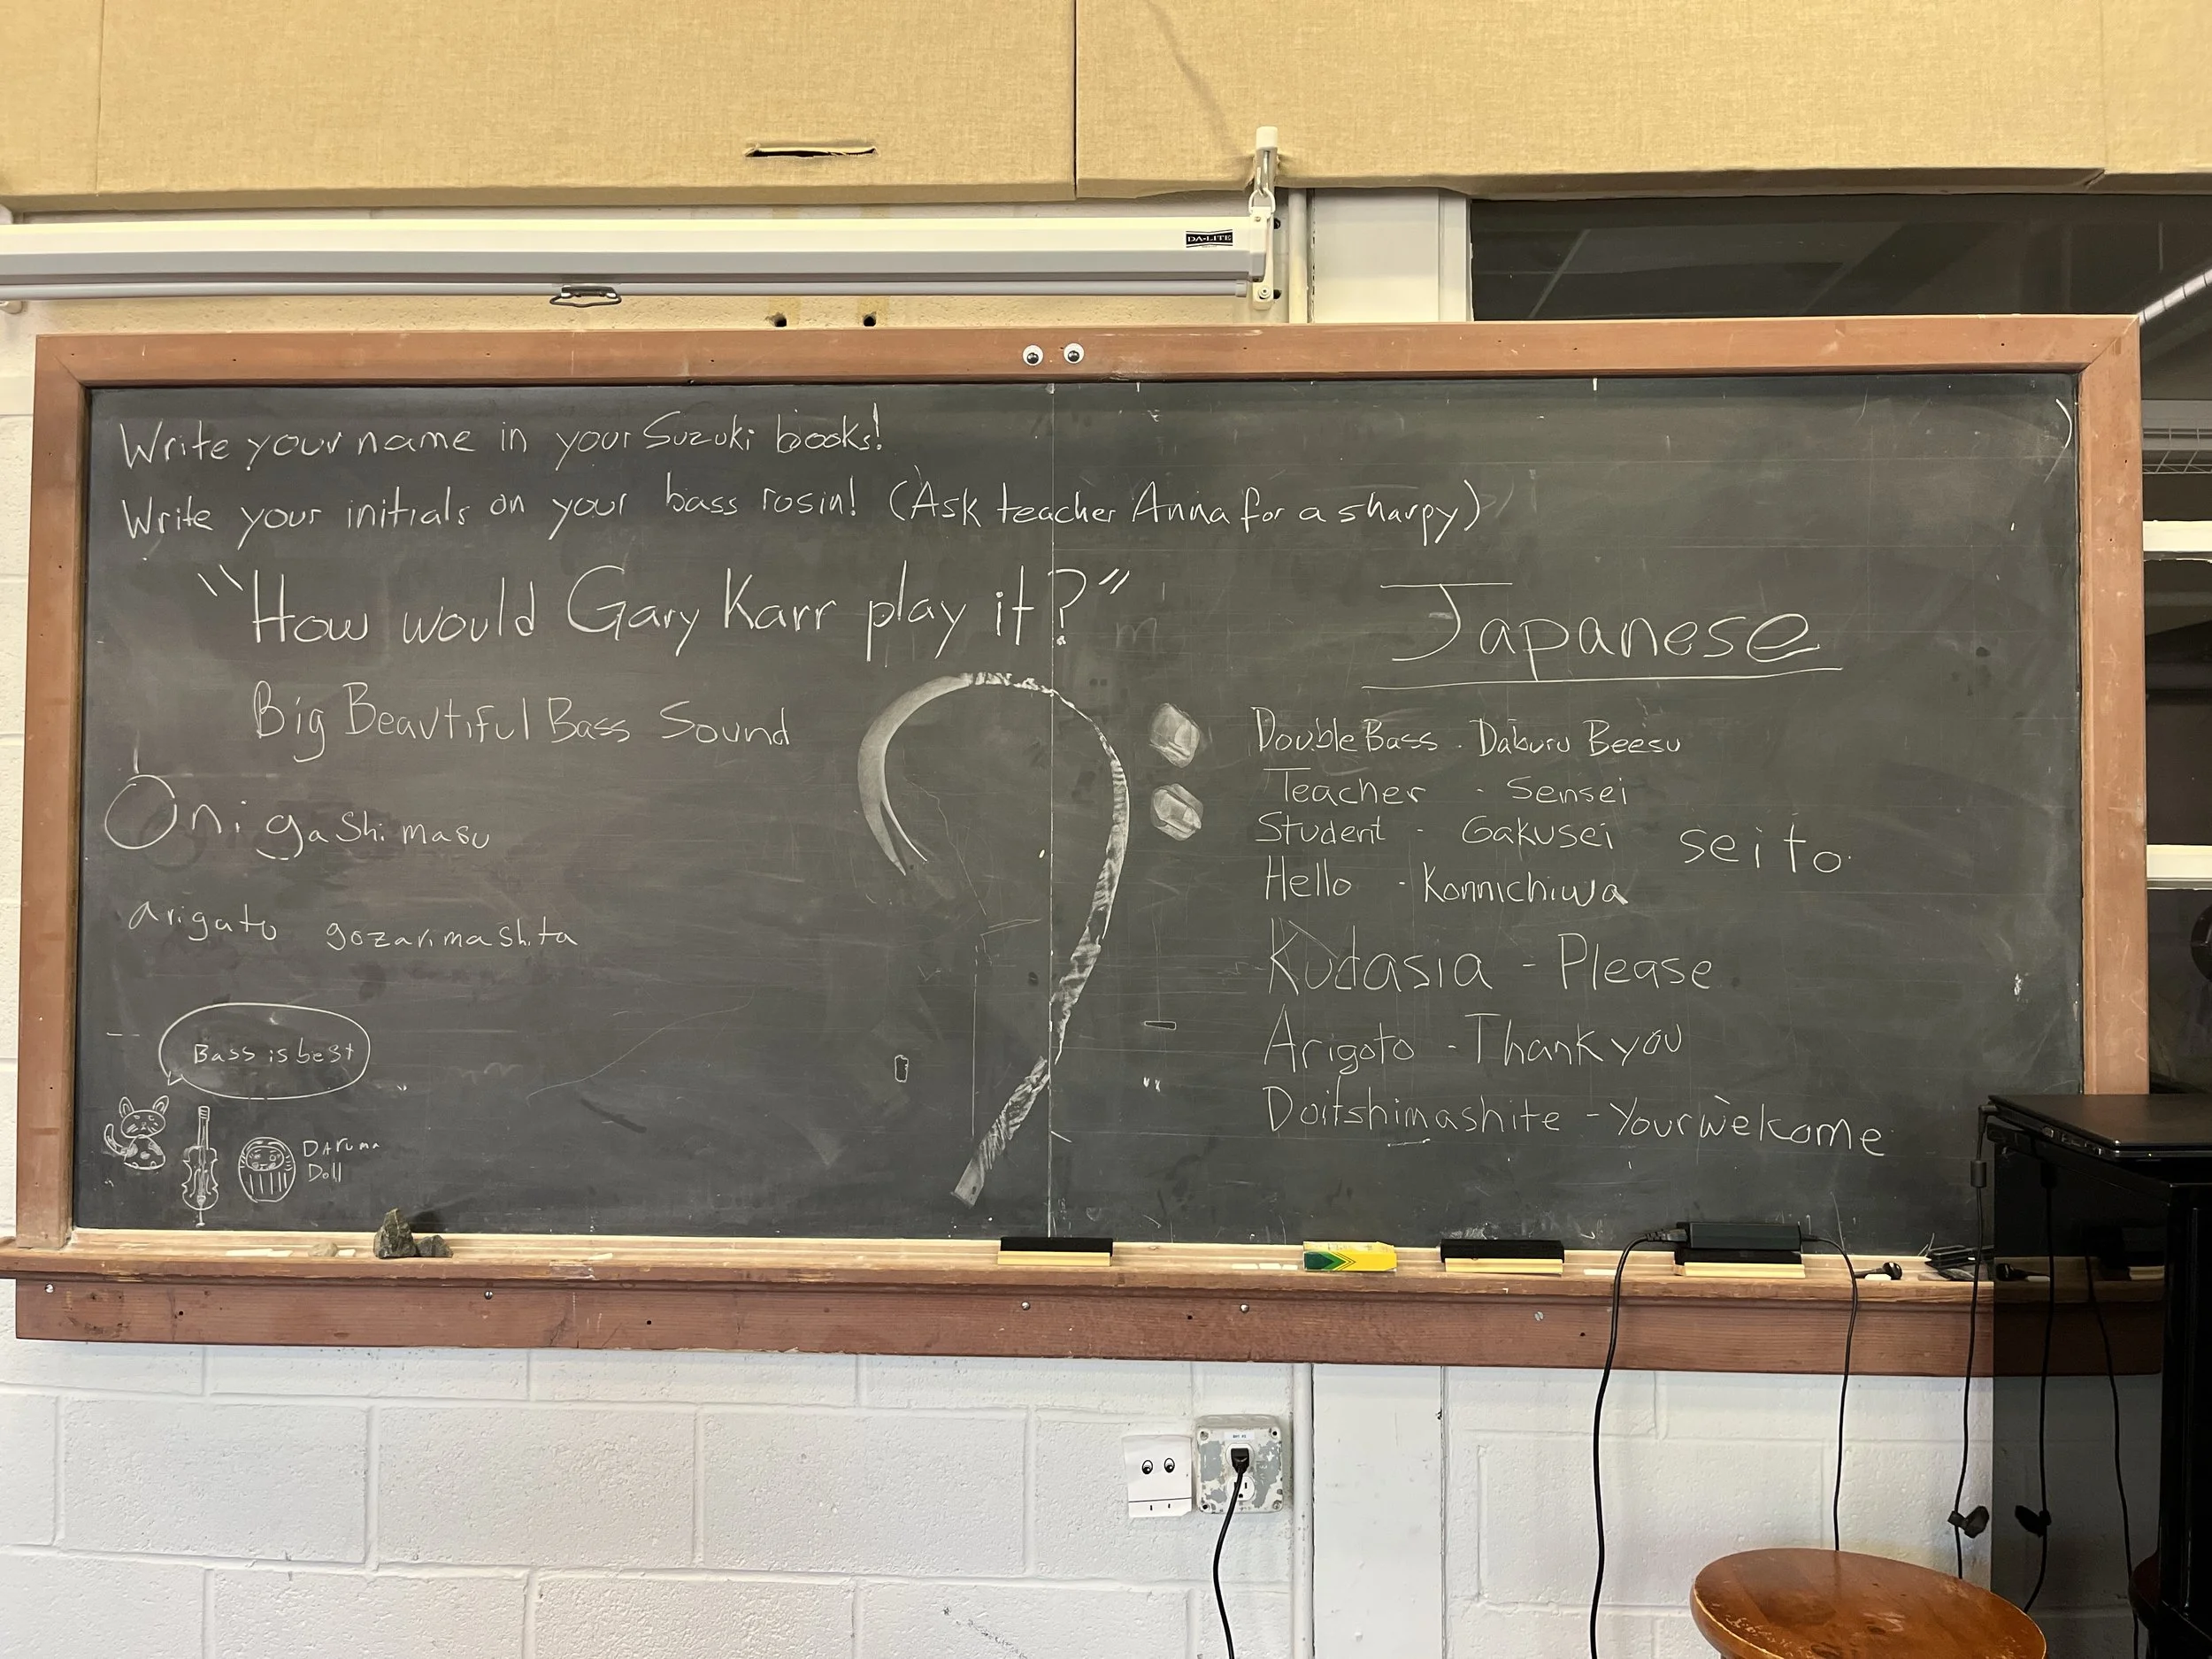 DA-LITE
Write your name in your Suzuki books!
Write your initials on your bass rosin! (Ask teacher Anna for a sharpy)
"How would Gary Karr play it?"
Big Beautiful Bass Sound
Onigashimasu
arigato gozarimashita
Bass is best
Daruma
Doll
Japanese
Double Bass - Daburu Beesu
Teacher - Sensei
Student - Gakusei seito
Hello - Konnichiwa
Kudasia - Please
Arigoto - Thank you
Doitshimashite - Your welcome